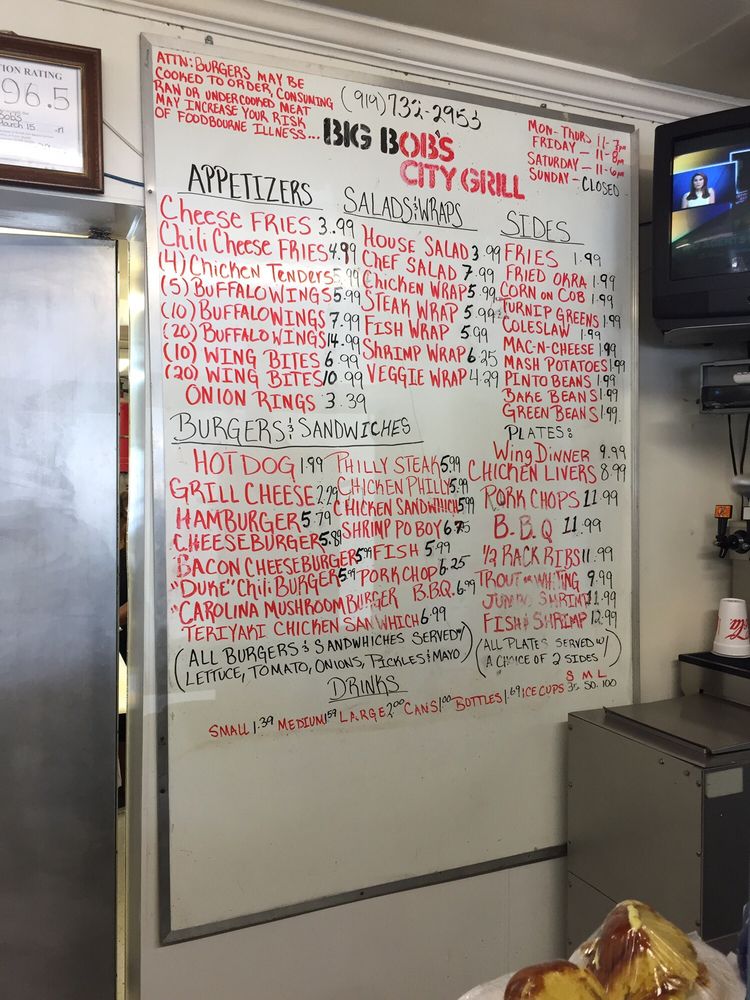 ION RATING
96.5
BOB'S
March 15
ATTN: BURGERS MAY BE
COOKED TO ORDER, CONSUMING
RAW OR UNDERCOOKED MEAT
MAY INCREASE YOUR RISK
OF FOODBOURNE ILLNESS...
(919) 732-2953
BIG BOB'S
CITY GRILL
MON-THURS 11-7pm
FRIDAY - 11-8pm
SATURDAY - 11-6pm
SUNDAY - CLOSED
APPETIZERS
CHEESE FRIES 3.99
CHILI CHEESE FRIES 4.99
(4) CHICKEN TENDERS 5.99
(5) BUFFALO WINGS 5.99
(10) BUFFALO WINGS 7.99
(20) BUFFALO WINGS 14.99
(10) WING BITES 6.99
(20) WING BITES 10.99
ONION RINGS 3.39
SALADS & WRAPS
HOUSE SALAD 3.99
CHEF SALAD 7.99
CHICKEN WRAP 5.99
STEAK WRAP 5.99
FISH WRAP 5.99
SHRIMP WRAP 6.25
VEGGIE WRAP 4.29
SIDES
FRIES 1.99
FRIED OKRA 1.99
CORN ON COB 1.99
TURNIP GREENS 1.99
COLESLAW 1.99
MAC-N-CHEESE 1.99
MASH POTATOES 1.99
PINTO BEANS 1.99
BAKE BEANS 1.99
GREEN BEANS 1.99
BURGERS & SANDWICHES
HOT DOG 1.99
GRILL CHEESE 2.29
HAMBURGER 5.79
CHEESEBURGER 5.89
BACON CHEESEBURGER 5.99
"DUKE" CHILI BURGER 5.99
"CAROLINA MUSHROOM BURGER
TERIYAKI CHICKEN SANWHICH 6.99
PHILLY STEAK 5.99
CHICKEN PHILLY 5.99
CHICKEN SANDWHICH 5.99
SHRINP PO BOY 6.75
FISH 5.99
PORK CHOP 6.25
B.B.Q. 6.99
(ALL BURGERS & SANDWHICHES SERVED W/
LETTUCE, TOMATO, ONIONS, PICKLES & MAYO)
PLATES:
WING DINNER 9.99
CHICKEN LIVERS 8.99
PORK CHOPS 11.99
B.B.Q 11.99
1/2 RACK RIBS 11.99
TROUT or WHITING 9.99
JUMBO SHRIMP 11.99
FISH & SHRIMP 12.99
(ALL PLATES SERVED W/
A CHOICE OF 2 SIDES)
DRINKS
S M L
SMALL 1.39 MEDIUM 1.59 LARGE 2.00 CANS 1.00 BOTTLES 1.69 ICE CUPS 35 50 100